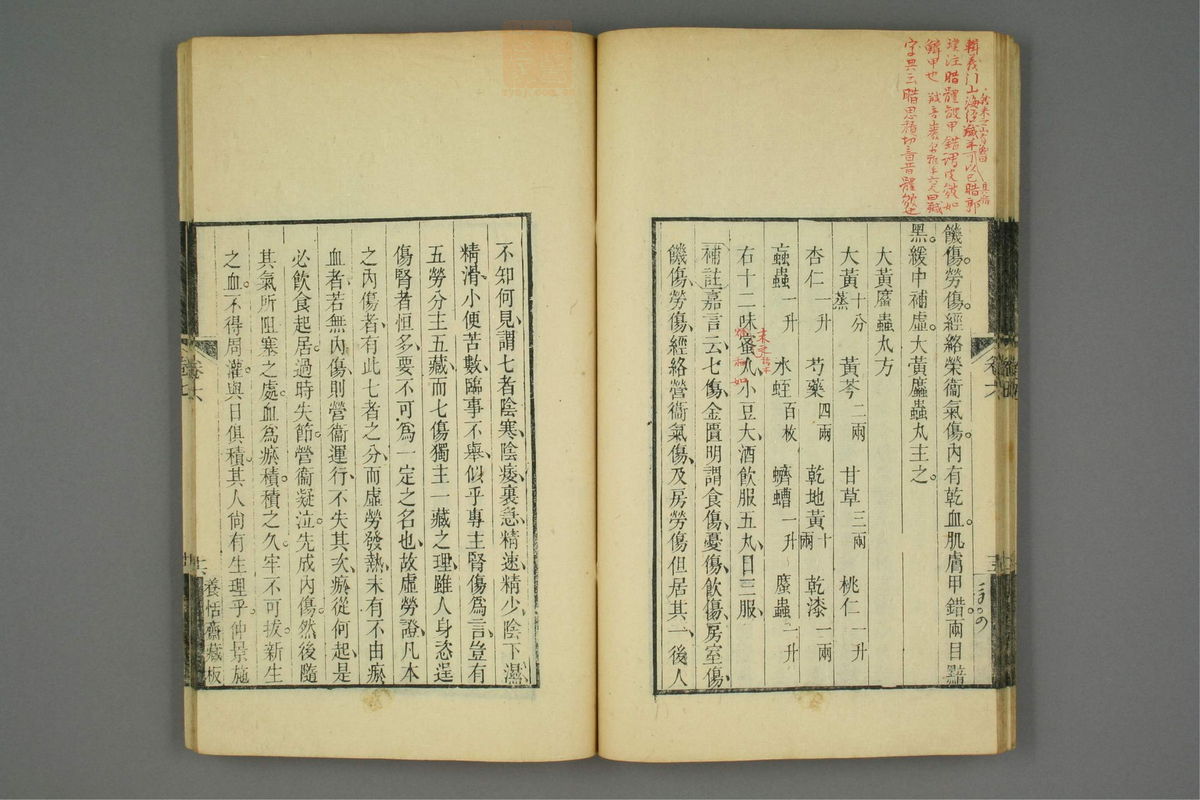 饑傷勞傷經絡榮衞氣傷內有乾血肌膚甲錯兩目黯
黑緩中補虛大黃䗪蟲丸主之
大黃䗪蟲丸方
大黃十分蒸 黃芩二兩 甘草三兩 桃仁一升
杏仁一升 芍藥四兩 乾地黃十兩 乾漆一兩
蝱蟲一升 水蛭百枚 蠐螬一升 䗪蟲一升
右十二味蜜丸小豆大酒飲服五丸日三服
補註嘉言云七傷金匱明謂食傷憂傷飲傷房室傷
饑傷勞傷經絡營衞氣傷及房勞傷但居其一後人
不知何見謂七者陰寒陰痿裏急精速精少陰下濕
精滑小便苦數臨事不舉似乎專主腎傷爲言豈有
五勞分主五藏而七傷獨主一藏之理雖人身恣逞
傷腎者恒多要不可爲一定之名也故虛勞證凡本
之內傷者有此七者之分而虛勞發熱未有不由瘀
血者若無內傷則營衞運行不失其次瘀從何起是
必飲食起居過時失節營衞凝泣先成內傷然後隨
其氣所阻塞之處血爲瘀積積之久牢不可拔新生
之血不得周灌與日俱積其人尙有生理乎仲景施
養恬齋藏板
卷六